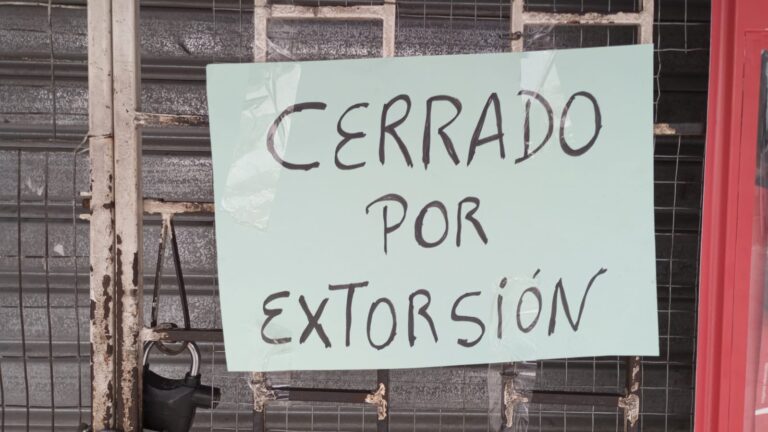 CERRADO
POR
EXTORSIÓN